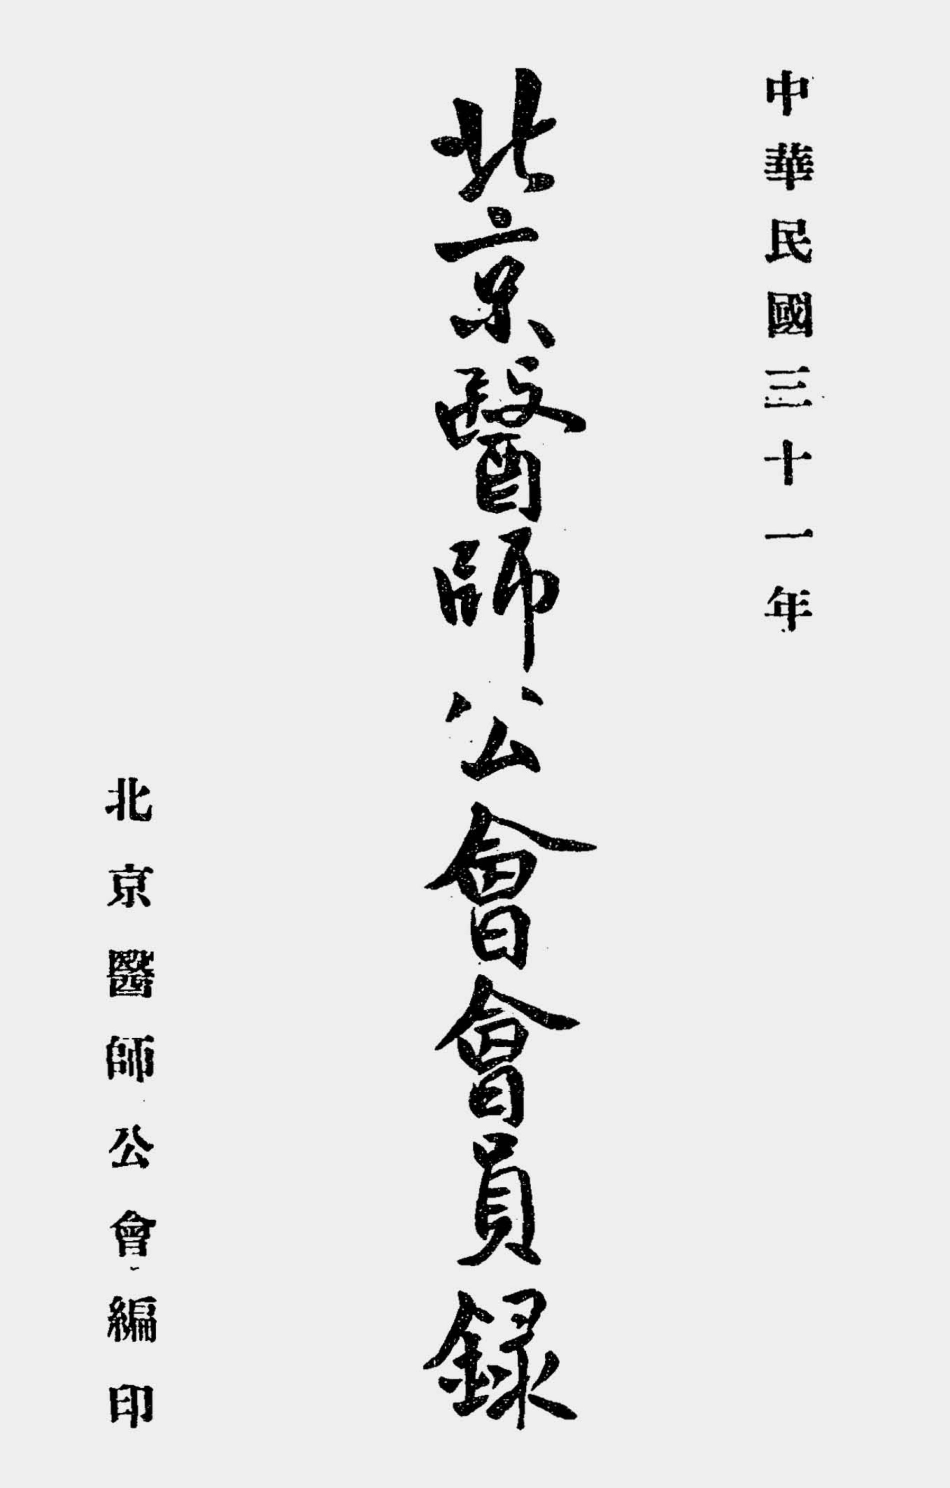 中華民國三十一年
北京醫師公會會員録
北京醫師公會編印